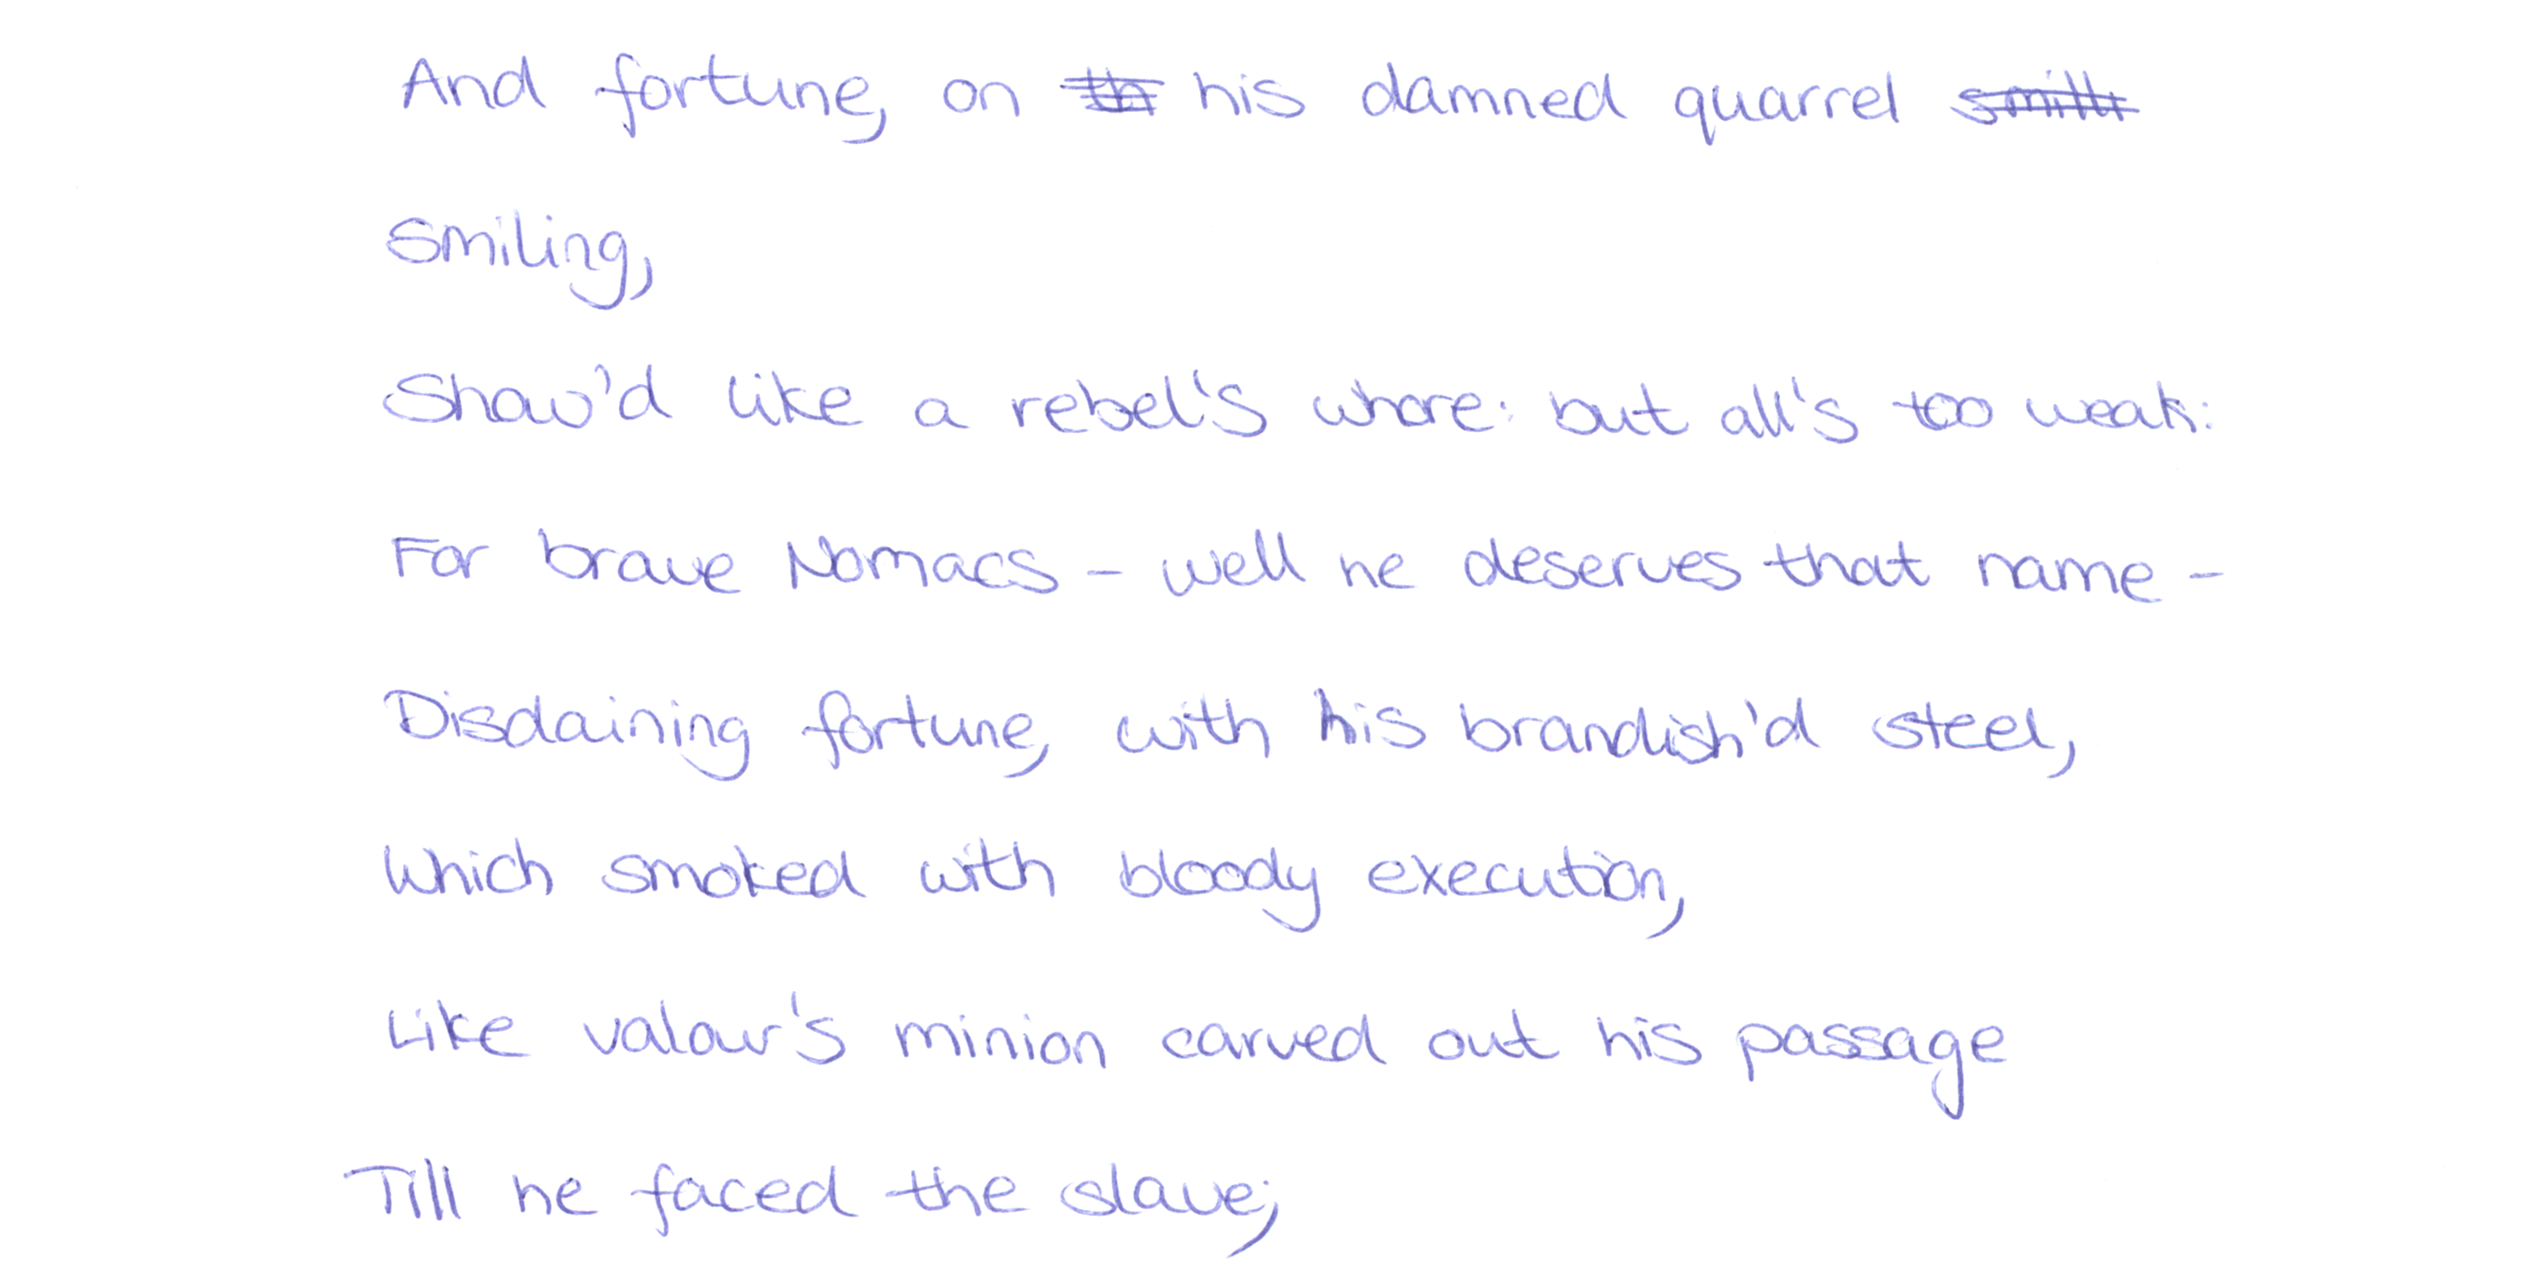 And fortune, on his damned quarrel
Smiling,
Show'd like a rebel's whore: but all's too weak:
For brave Nomacs – well he deserves that name –
Disdaining fortune, with his brandish'd steel,
Which smoked with bloody execution,
Like valour's minion carved out his passage
Till he faced the slave;